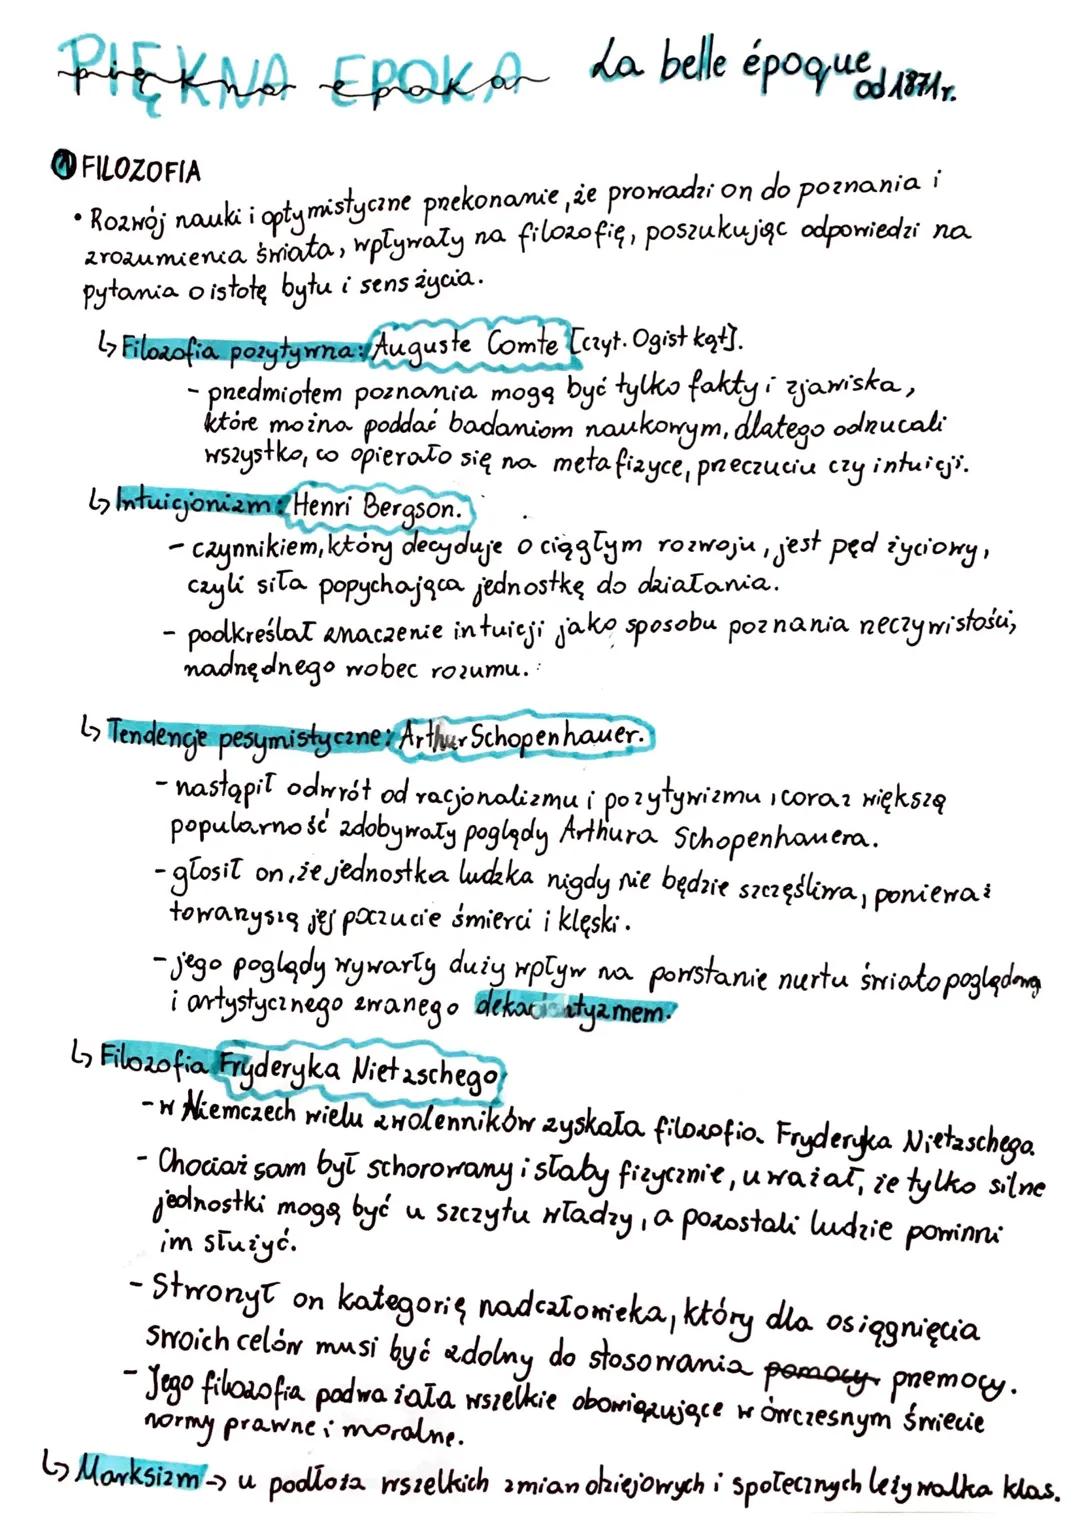 PIĘKNA EPOKA
piękna epoka
La belle époque od 1871r.
1 FILOZOFIA
• Rozwój nauki i optymistyczne przekonanie, że prowadzi on do poznania i
zrozumienia świata, wpływały na filozofię, poszukując odpowiedzi na
pytania o istotę bytu i sens życia.
↳ Filozofia pozytywna: Auguste Comte [czyt. Ogist kąt].
- przedmiotem poznania mogą być tylko fakty i zjawiska,
które można poddać badaniom naukowym, dlatego odrzucali
wszystko, co opierało się na metafizyce, przeczuciu czy intuicji.
↳ Intuicjonizm: Henri Bergson.
- czynnikiem, który decyduje o ciągłym rozwoju, jest pęd życiowy,
czyli siła popychająca jednostkę do działania.
- podkreślał znaczenie intuicji jako sposobu poznania rzeczywistości,
nadrzędnego wobec rozumu.
↳ Tendencje pesymistyczne: Arthur Schopenhauer.
- nastąpił odwrót od racjonalizmu i pozytywizmu, coraz większą
popularność zdobywały poglądy Arthura Schopenhauera.
- głosił on, że jednostka ludzka nigdy nie będzie szczęśliwa, ponieważ
towarzyszą jej poczucie śmierci i klęski.
- jego poglądy wywarły duży wpływ na powstanie nurtu światopoglądowg
i artystycznego zwanego dekadentyzmem.
↳ Filozofia Fryderyka Nietzschego
- w Niemczech wielu zwolenników zyskała filozofia Fryderyka Nietzschego.
- Chociaż sam był schorowany i słaby fizycznie, uważał, że tylko silne
jednostki mogą być u szczytu władzy, a pozostali ludzie powinni
im służyć.
- Stworzył on kategorię nadczłowieka, który dla osiągnięcia
swoich celów musi być zdolny do stosowania pomocy przemocy.
- Jego filozofia podważała wszelkie obowiązujące w ówczesnym świecie
normy prawne i moralne.
↳ Marksizm → u podłoża wszelkich zmian dziejowych i społecznych leży walka klas.